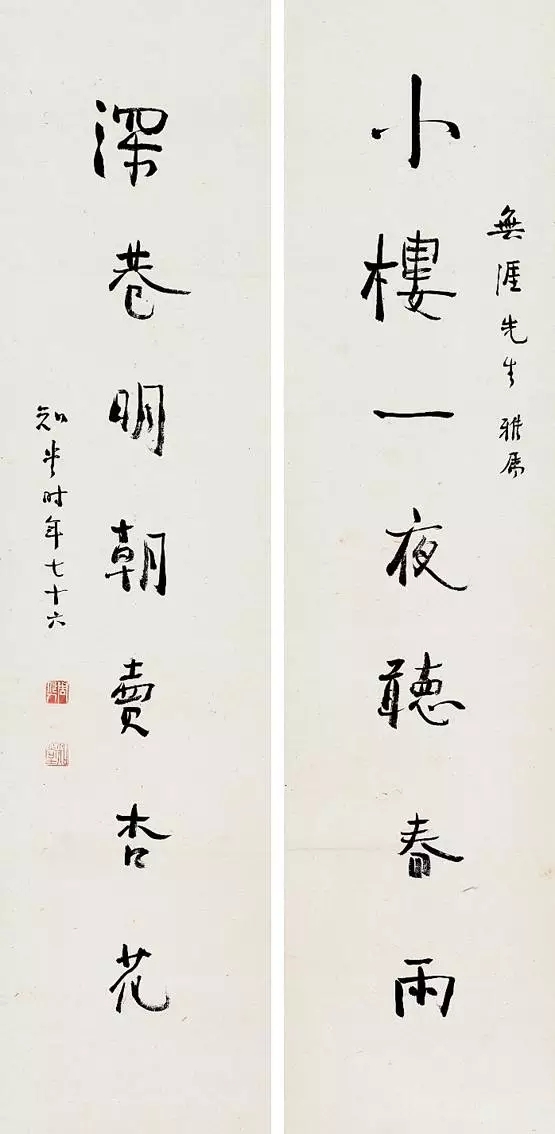 無涯先生 雅属
小樓一夜聽春雨
深巷明朝賣杏花
知堂时年七十六